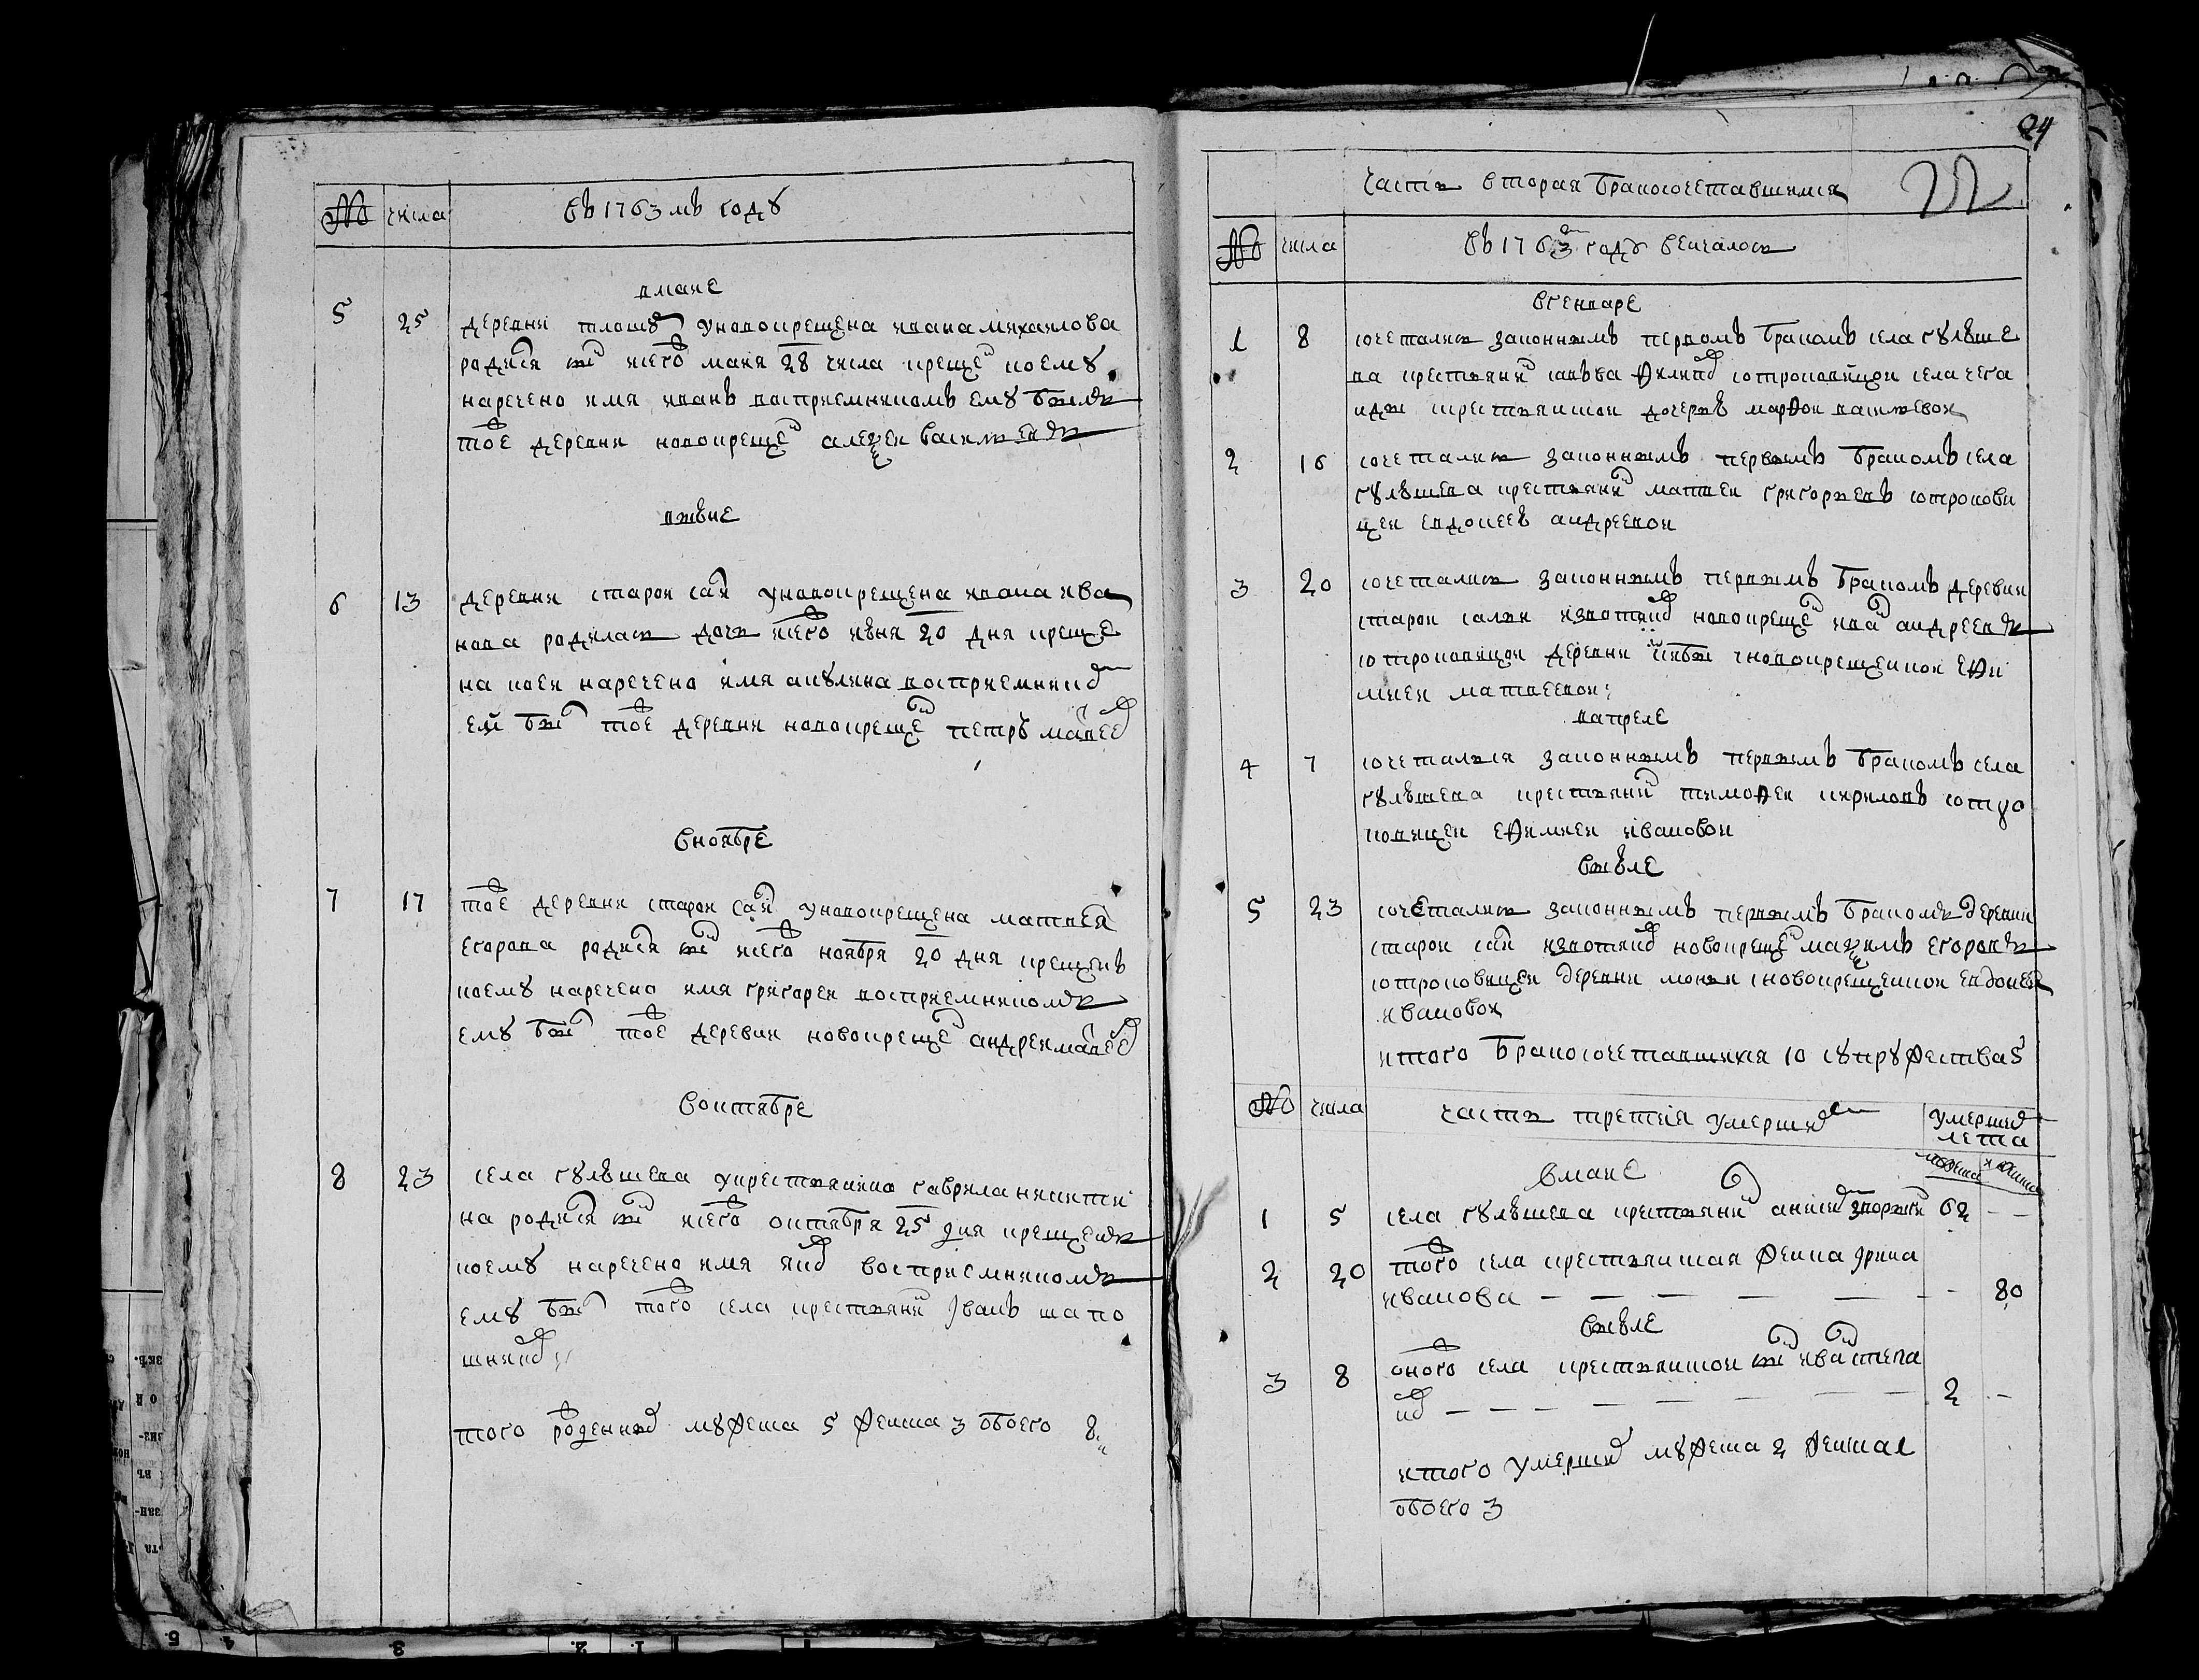 № числа въ 1763 мъ году
в маие
5 25 деревни у новокрещена ивана михаилова
родися сы́ н у него маия 28 числа креще коему
наречено имя иванъ восприемникомъ ему былъ
тое деревни новокреще алеѯеи василиевъ
в июне
6 13 деревни старои у новокрещена ивана ива
нова родилась дочь у него июня 20 дня креще
на коеи наречено имя акулина восприемником
еи бы тое деревни новокреще петръ матвее
в ноябре
7 17 тое деревни старои у новокрещена матвея
егорова родися сы у него ноября 20 дня крещенъ
коему наречено имя григореи восприемникомъ
ему бы тое деревни новокреще андреи матвее
в октябре
8 23 села гулюшева у крестьянина гаврила никити
на родися сы у него октября 25 дня крещенъ
коему наречено имя яко восприемникомъ
ему бы того села крестьяни иванъ шапо
шнико
того рожденны мужеска 5 женска 3 обоего 8
24
часть вторая бракосочетавшимся 22
№ числа въ 1763 м году венчалось
в генваре
1 8 сочетались законнымъ первомъ бракомъ села гулюше
ва крестьяни савва филипо с отроковицои села чега
крестьянскои дочерью марфои василиевои
2 16 сочетались законнымъ первымъ бракомъ села
гулюшева крестьяни матвеи григориевъ с отрокови
цеи евдокеею андреевои
3 20 сочетались законнымъ первымъ бракомъ деревни
старои новокреще ива андреевъ
с отроковицои деревни с новокрещенскои ефи
миеи матвеевои
в апреле
4 7 сочеталися законнымъ первымъ бракомъ села
гулюшева крестьяни тимофеи кириловъ с отро
ковицеи ефимиеи ивановои
в июле
5 23 сочетались законнымъ первымъ бракомъ деревни
старои новокреще маѯимъ егоровъ
с отроковицеи деревни с новокрещенскои евдокее
ивановои
итого бракосочетавшихся 10 супружества 5
№ числа часть третия умерши умерши
лета
мужеска женска
в маие
1 5 села гулюшева крестьяни 62 – –
2 20 того села крестьянская женка ирина
иванова – – – – – – 80
в июле
3 8 оного села крестьянскои сы ива степа
но – – – – – – – 2 –
итого умерши мужеска 2 женска 1
обоего 3